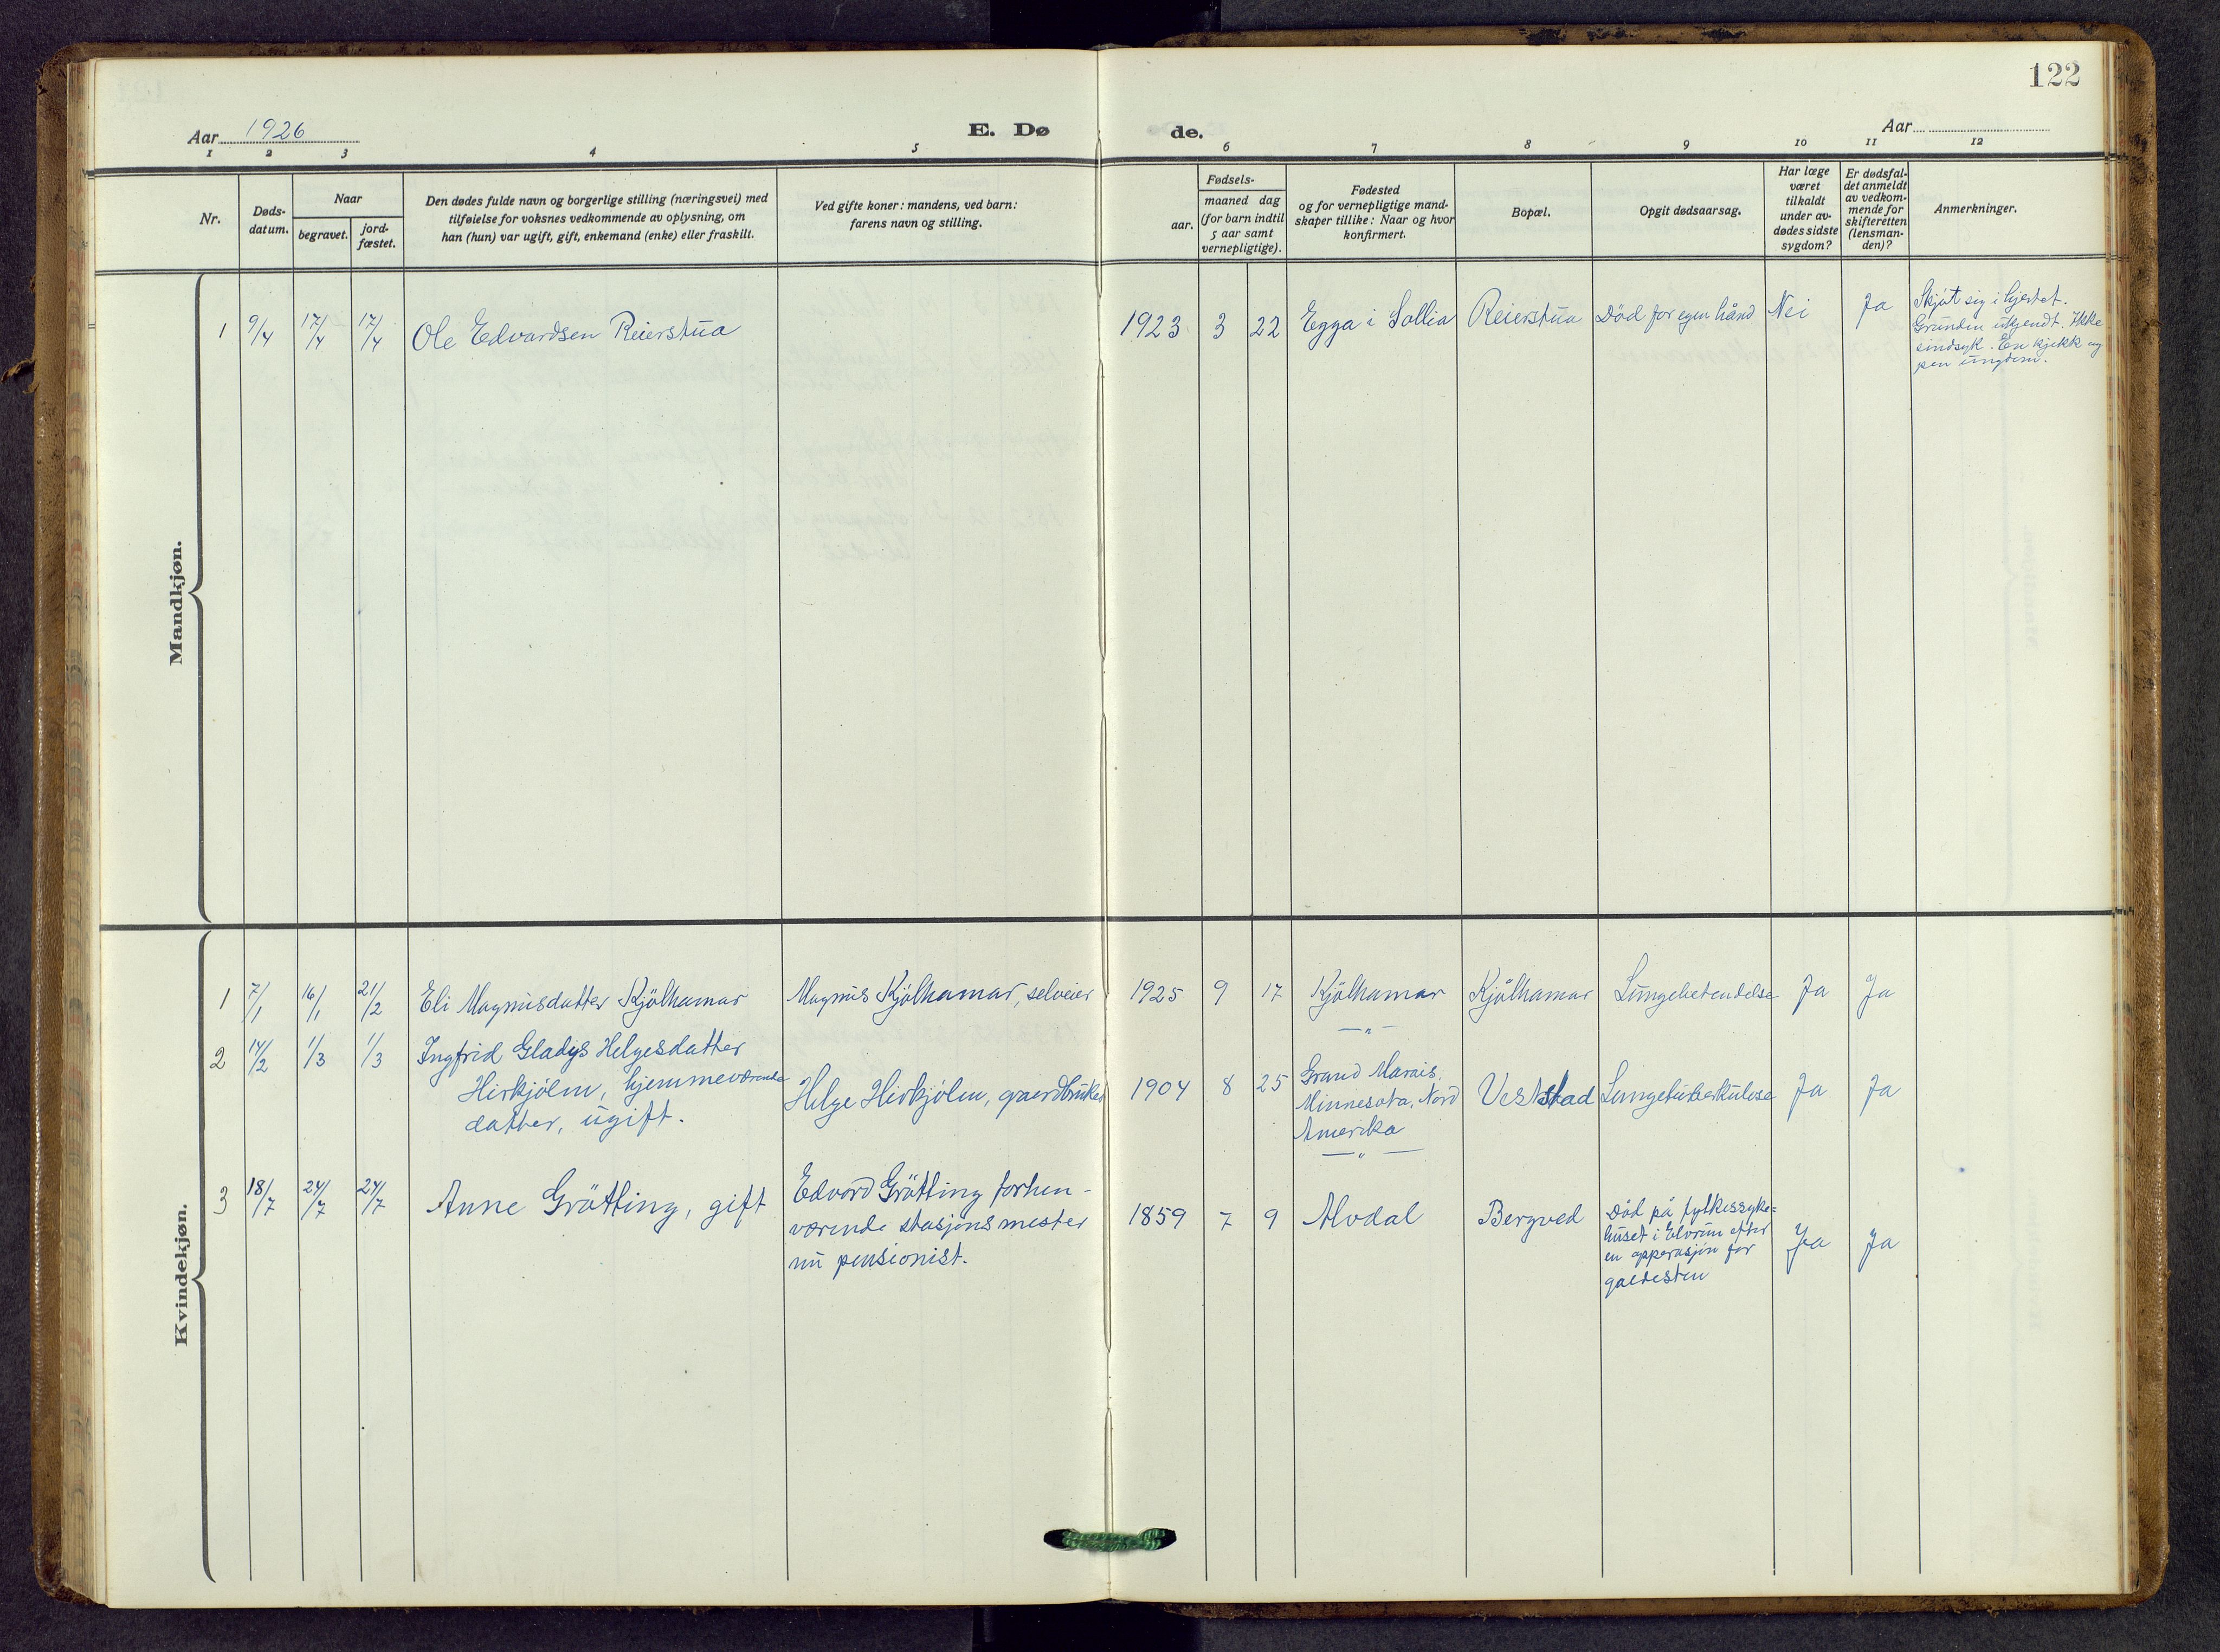 122
Aar 1926
E. Dø
de.
Aar
1 2 3 4 5 6 7 8 9 10 11 12
Nr.
Døds-
datum.
Naar
begravet.
jord-
fæstet.
Den dødes fulde navn og borgerlige stilling (næringsvei) med
tilføielse for voksnes vedkommende av oplysning, om
han (hun) var ugift, gift, enkemand (enke) eller fraskilt.
Ved gifte koner: mandens, ved barn:
farens navn og stilling.
Fødsels-
aar.
maaned dag
(for barn indtil
5 aar samt
vernepligtige).
Fødested
og for vernepligtige mand-
skaper tillike: Naar og hvor
konfirmert.
Bopæl.
Opgit dødsaarsag.
Har læge
været
tilkaldt
under av-
dødes sidste
sygdom?
Er dødsfal-
det anmeldt
av vedkom-
mende for
skifteretten
(lensman-
den)?
Anmerkninger.
Mandkjøn.
1 9/4 17/4 17/4 Ole Edvardsen Reierstua
1923 3 22 Egga i Sollia Reierstua Död for egen hånd Nei Ja
Skjöt sig i hjertet.
Grunden ukjendt. Ikke
sindsyk. En kjekk og
pen ungdom.
Kvindekjøn.
1 7/1 16/1 21/2 Eli Magnusdatter Kjölhamar
Magnus Kjölhamar, selveier
1925 9 17 Kjölhamar Kjölhamar Lungebetendelse Ja Ja
— " —
2 14/2 1/3 1/3 Ingfrid Gladys Helgesdatter
Hirkjölm, hjemmeværende
datter, ugift.
Helge Hirkjölm, gaardbruker
1904 8 25 Grand Marais,
Minnesota, Nord
Amerika
Veststad Lungetuberkulose Ja Ja
— " —
3 18/7 24/7 24/7 Anne Grötting, gift
Edvard Grötting forhen-
værende stasjonsmester
nu pensionist.
1859 7 9 Alvdal Bergved
Död på fylkessyke=
huset i Elvrum efter
en opperasjon for
galdesten
Ja Ja